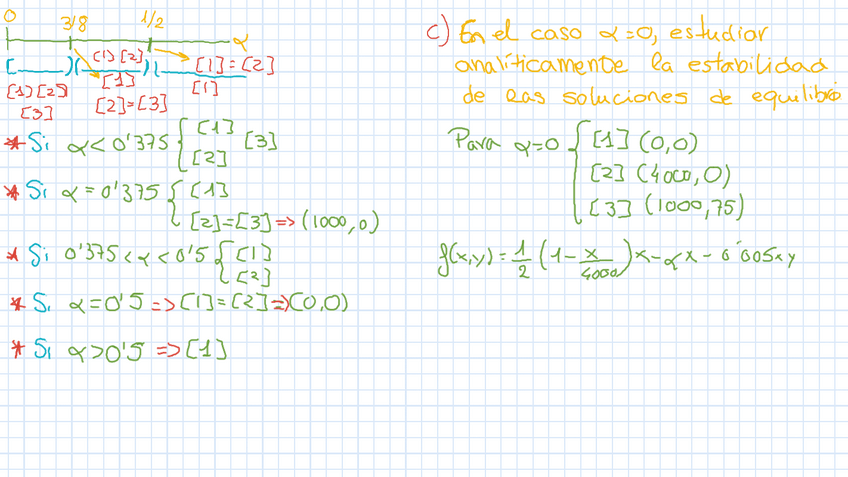 0 3/8 1/2 α
[1] [2] [1] = [2]
[1] [1]
[1] [2] [2] = [3]
[3]
* Si α < 0'375 { [1] [3]
[2]
* Si α = 0'375 { [1]
[2] = [3] => (1000, 0)
* Si 0'375 < α < 0'5 { [1]
[2]
* Si α = 0'5 => [1] = [2] => (0,0)
* Si α > 0'5 => [1]
c) En el caso α = 0, estudiar
analíticamente la estabilidad
de las soluciones de equilibrio
Para α = 0 { [1] (0,0)
[2] (4000, 0)
[3] (1000, 75)
f(x,y) = 1/2 (1 - x/4000) x - αx - 0'005xy